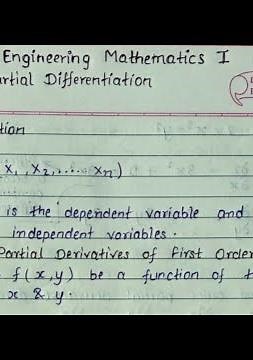 Engineering Mathematics I
rtial Differentiation
tion
x₁, x₂, ..... xₙ)
is the dependent variable and
independent variables.
Partial Derivatives of First Order
f(x,y) be a function of t
x & y.